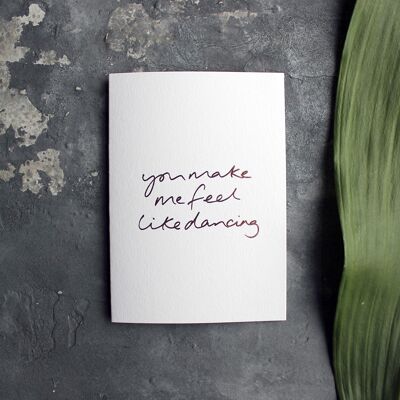 you make
me feel
like dancing